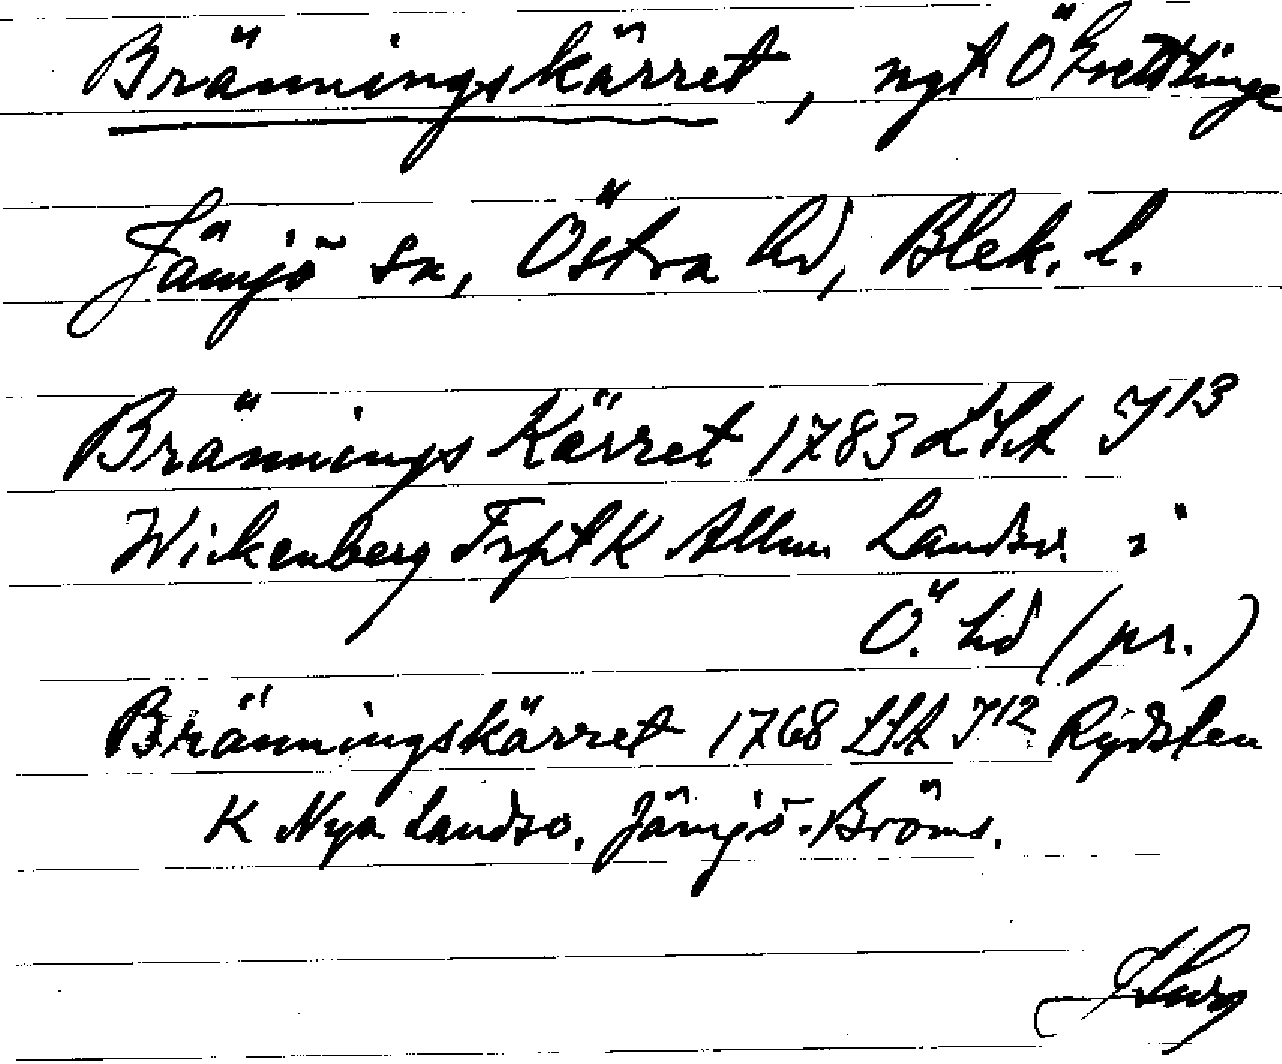 Bränningskärret, ngt Ö
Jämjö sn, Östra hd, Blek. l.
Brännings Kärret 1783 LSA I 13
Wickenberg TrptK Allm. Landsv. i
Ö. hd (pr.)
Bränningskärret 1768 LSA I 12 Rydsten
K Nya Landsv. Jämjö-Bröms.